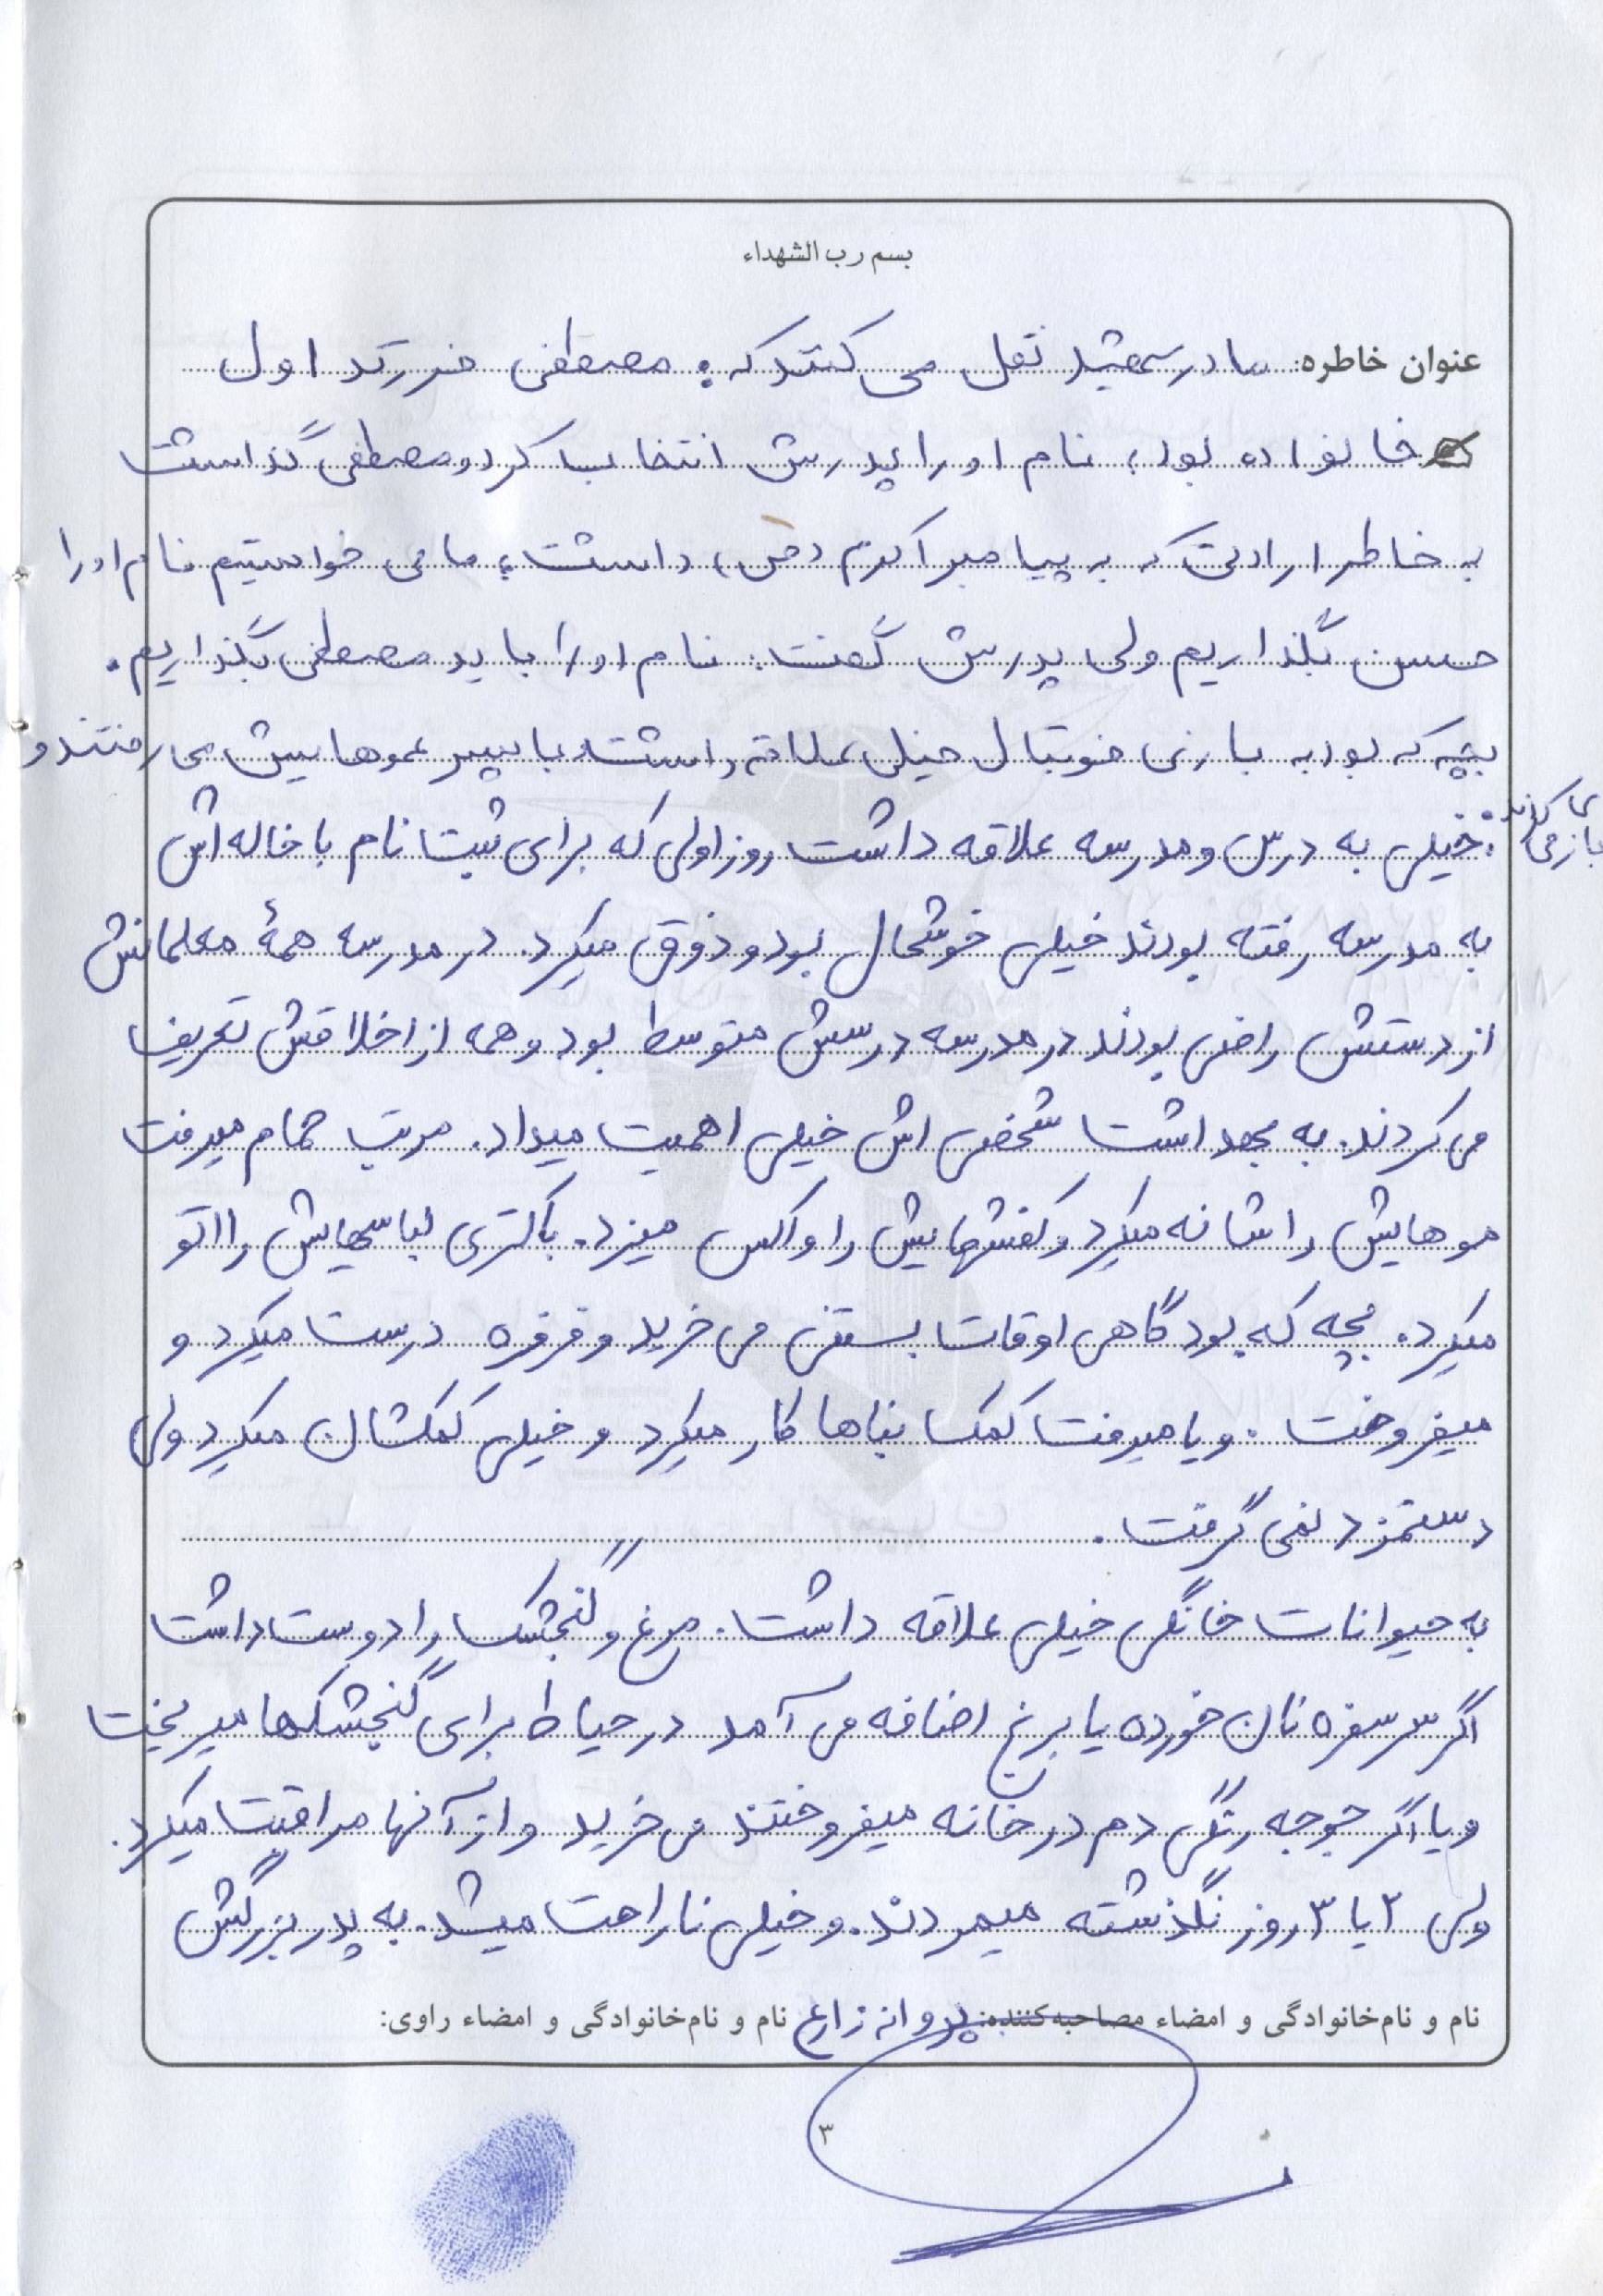 بسم رب الشهداء
عنوان خاطره: مادر شهید نقل می کنند که : مصطفی فرزند اول
خانواده بود ، نام او را پدرش انتخاب کرد و مصطفی گذاشت
به خاطر ارادتی که به پیامبر اکرم (ص) داشت ، ما می خواستیم نام او را
حسن بگذاریم ولی پدرش گفت : نام او را باید مصطفی بگذاریم .
بچه که بود به بازی فوتبال خیلی علاقه داشت با پسر عموهایش می رفتند و
بازی می کردند .
خیلی به درس و مدرسه علاقه داشت روز اولی که برای ثبت نام با خاله اش
به مدرسه رفته بودند خیلی خوشحال بود و ذوق میکرد . در مدرسه همهٔ معلمانش
از دستش راضی بودند در مدرسه درسش متوسط بود و همه از اخلاقش تعریف
می کردند . به بهداشت شخصی اش خیلی اهمیت میداد . مرتب حمام میرفت
موهایش را شانه میکرد و کفشهایش را واکس میزد . با کتری لباسهایش را اتو
میکرد . بچه که بود گاهی اوقات بستنی می خرید و فرفره درست میکرد و
میفروخت . و یا میرفت کمک بناها کار میکرد و خیلی کمکشان میکرد ولی
دستمزد نمی گرفت .
به حیوانات خانگی خیلی علاقه داشت . مرغ و گنجشک را دوست داشت
اگر سر سفره نان خورده یا برنج اضافه می آمد در حیاط برای گنجشکها میریخت
و یا اگر جوجه رنگی دم در خانه میفروختند می خرید و از آنها مراقبت میکرد .
ولی ۲ یا ۳ روز نگذشته میمردند . و خیلی ناراحت میشد . به پدر بزرگش
نام و نام‌خانوادگی و امضاء مصاحبه‌کننده: پروانه زارع نام و نام‌خانوادگی و امضاء راوی:
۳